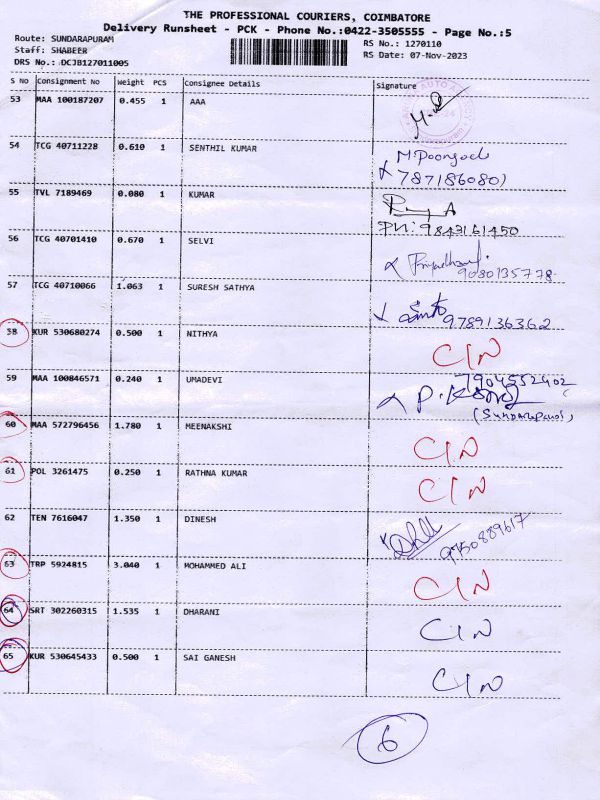 THE PROFESSIONAL COURIERS, COIMBATORE
Delivery Runsheet - PCK - Phone No.:0422-3505555 - Page No.:5
Route: SUNDARAPURAM RS No.: 1270110
Staff: SHABEER RS Date: 07-Nov-2023
DRS No.: DCJB127011005
S No Consignment No Weight PCS Consignee Details Signature
53 MAA 100187207 0.455 1 AAA
54 TCG 40711228 0.610 1 SENTHIL KUMAR
7871860801
55 TVL 7189469 0.080 1 KUMAR
PH: 9843161450
56 TCG 40701410 0.670 1 SELVI
9080135778
57 TCG 40710066 1.063 1 SURESH SATHYA
9789136362
58 KUR 530680274 0.500 1 NITHYA CIN
59 MAA 100846571 0.240 1 UMADEVI 7904552402
60 MAA 572796456 1.780 1 MEENAKSHI CIN
61 POL 3261475 0.250 1 RATHNA KUMAR CIN
62 TEN 7616047 1.350 1 DINESH 9750889617
63 TRP 5924815 3.040 1 MOHAMMED ALI CIN
64 SRT 302260315 1.535 1 DHARANI CIN
65 KUR 530645433 0.500 1 SAI GANESH CIN
6